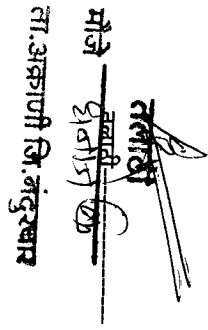 तलाठी
मौजे धनाजे बु
ता.अक्राणी जि.नंदुरबार